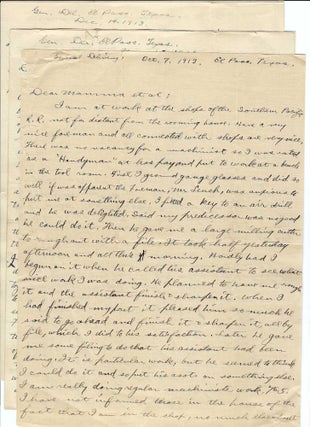 Gen. Del. El Paso, Texas.
Dec. 14, 1913.
Gen. Del. El Paso, Texas.
General Delivery: Oct. 7, 1913. El Paso, Texas.
Dear Mamma et al;
I am at work at the shops of the Southern Pacific
R.R. not far distant from the rooming house. Have a very
nice foreman and all connected with shops are very nice.
There was no vacancy for a machinist so I was rated
as a "Handyman" at less pay and put to work at a bench
in the tool room. First I ground gauge glasses and did so
well it was apparent the foreman, Mr. , was anxious to
put me at something else. I fitted a key to an air drill
and he was delighted. Said my predecessor was no good
he could do it. Then he gave me a large milling cutter
to roughout with a file. It took half yesterday
afternoon and all this morning. Hardly had I
begun on it when he called his assistant to see what
swell work I was doing. He planned to have me rough
it and the assistant finish & sharpen it. When I
had finished my part it pleased him so much he
said to go ahead and finish it & sharpen it, all by
file, which I did to his satisfaction. Later he gave
me some filing to do that his assistant had been
doing. It is particular work, but he seemed to think
I could do it and so put his asst on something else.
I am really doing regular machinists work, "but"
I have not informed those in the house of the
fact that I am in the shop, no much